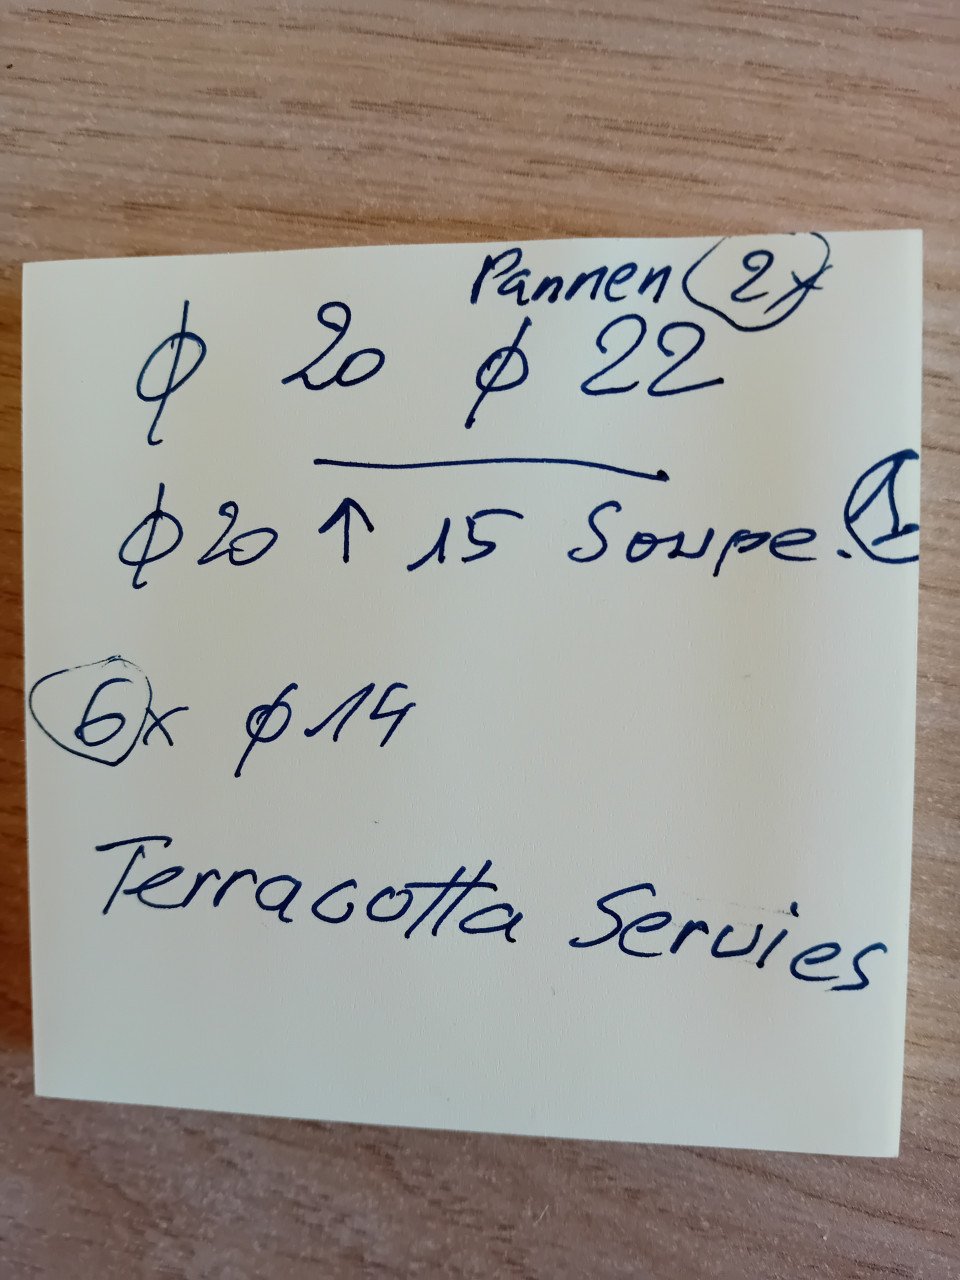 Pannen (2x)
ϕ 20 ϕ 22
ϕ 20 ↑ 15 Soupe. (1)
6x ϕ 14
Terracotta Servies